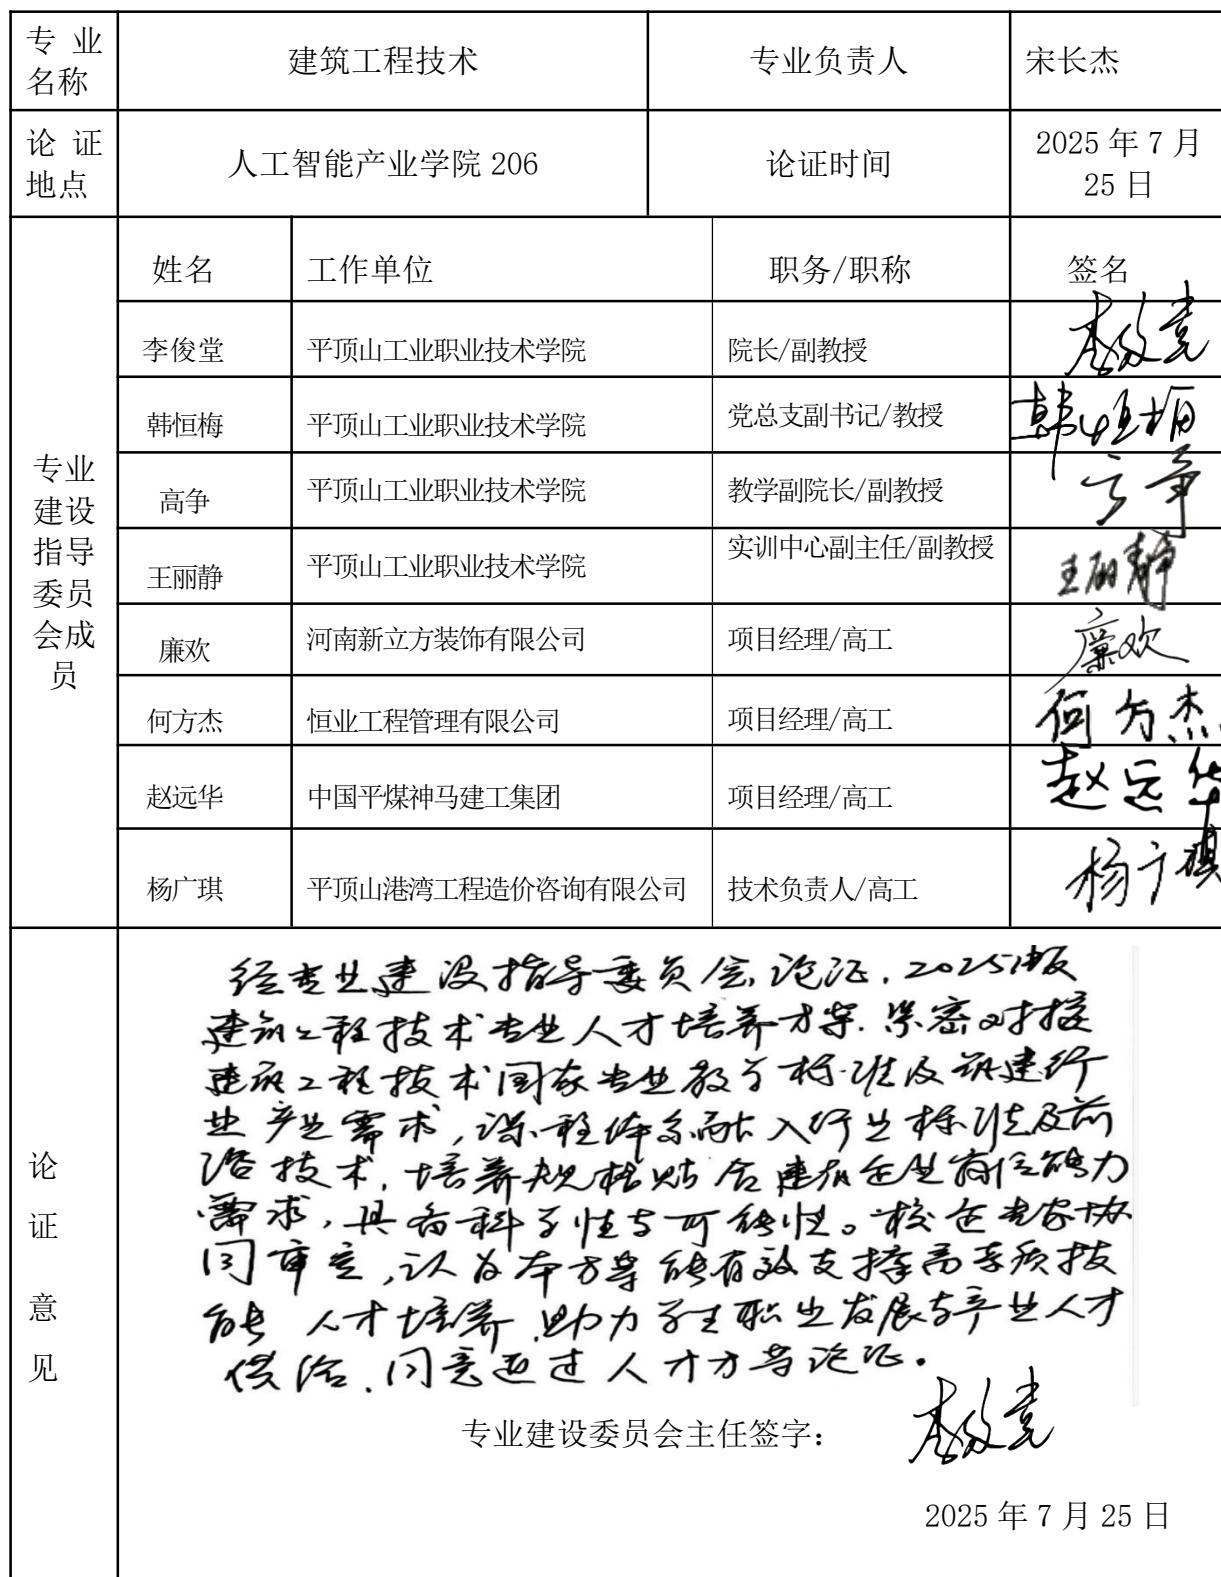 专 业
名称
建筑工程技术
专业负责人
宋长杰
论 证
地点
人工智能产业学院 206
论证时间
2025 年 7 月
25 日
专业
建设
指导
委员
会成
员
姓名
工作单位
职务/职称
签名
李俊堂
平顶山工业职业技术学院
院长/副教授
韩恒梅
平顶山工业职业技术学院
党总支副书记/教授
韩恒梅
高争
平顶山工业职业技术学院
教学副院长/副教授
高争
王丽静
平顶山工业职业技术学院
实训中心副主任/副教授
王丽静
廉欢
河南新立方装饰有限公司
项目经理/高工
廉欢
何方杰
恒业工程管理有限公司
项目经理/高工
何方杰
赵远华
中国平煤神马建工集团
项目经理/高工
赵远华
杨广琪
平顶山港湾工程造价咨询有限公司
技术负责人/高工
杨广琪
论
证
意
见
经专业建设指导委员会论证,2025版
建筑工程技术专业人才培养方案,紧密对接
建筑工程技术国家专业教学标准及筑建行
业产业需求,课程体系融入行业标准及前
沿技术,培养规格贴合建筑企业岗位能力
需求,具备科学性与可行性。校企专家协
同审定,认为本方案能有效支撑高素质技
能人才培养,助力学生职业发展与产业人才
供给,同意通过人才方案论证。
专业建设委员会主任签字:
2025 年 7 月 25 日